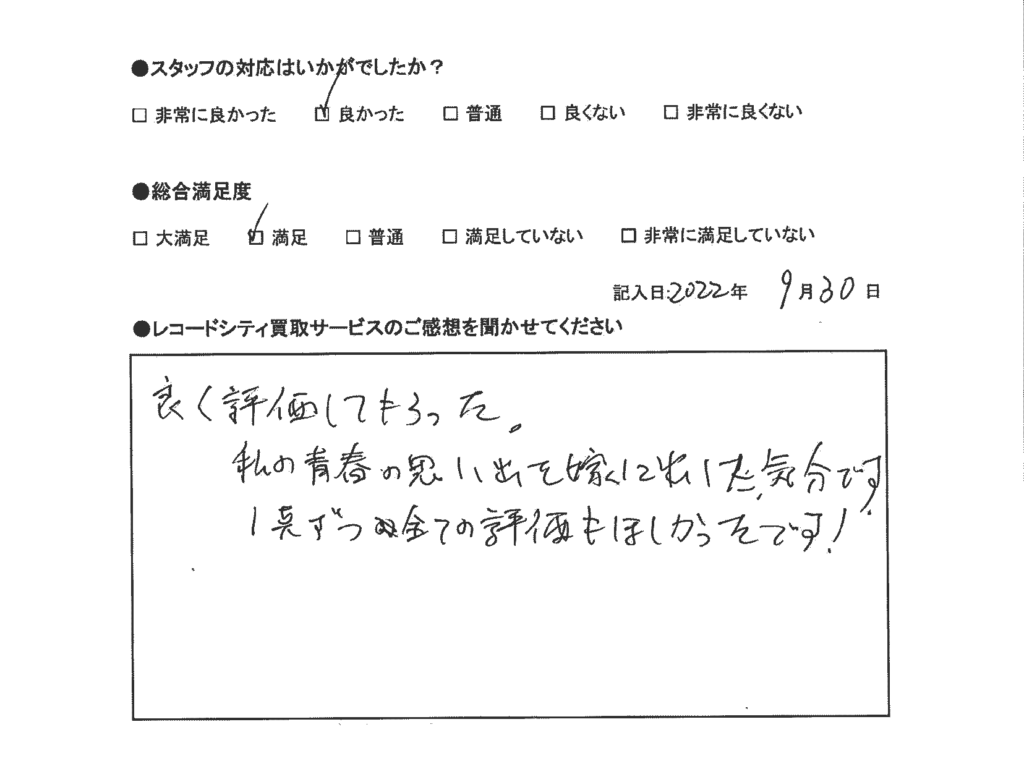 ●スタッフの対応はいかがでしたか？
□ 非常に良かった ☑ 良かった □ 普通 □ 良くない □ 非常に良くない
●総合満足度
□ 大満足 ☑ 満足 □ 普通 □ 満足していない □ 非常に満足していない
記入日:2022年 9月30日
●レコードシティ買取サービスのご感想を聞かせてください
良く評価してもらった。
私の青春の思い出を嫁に出した気分です!
1点ずつ全ての評価もほしかったです!